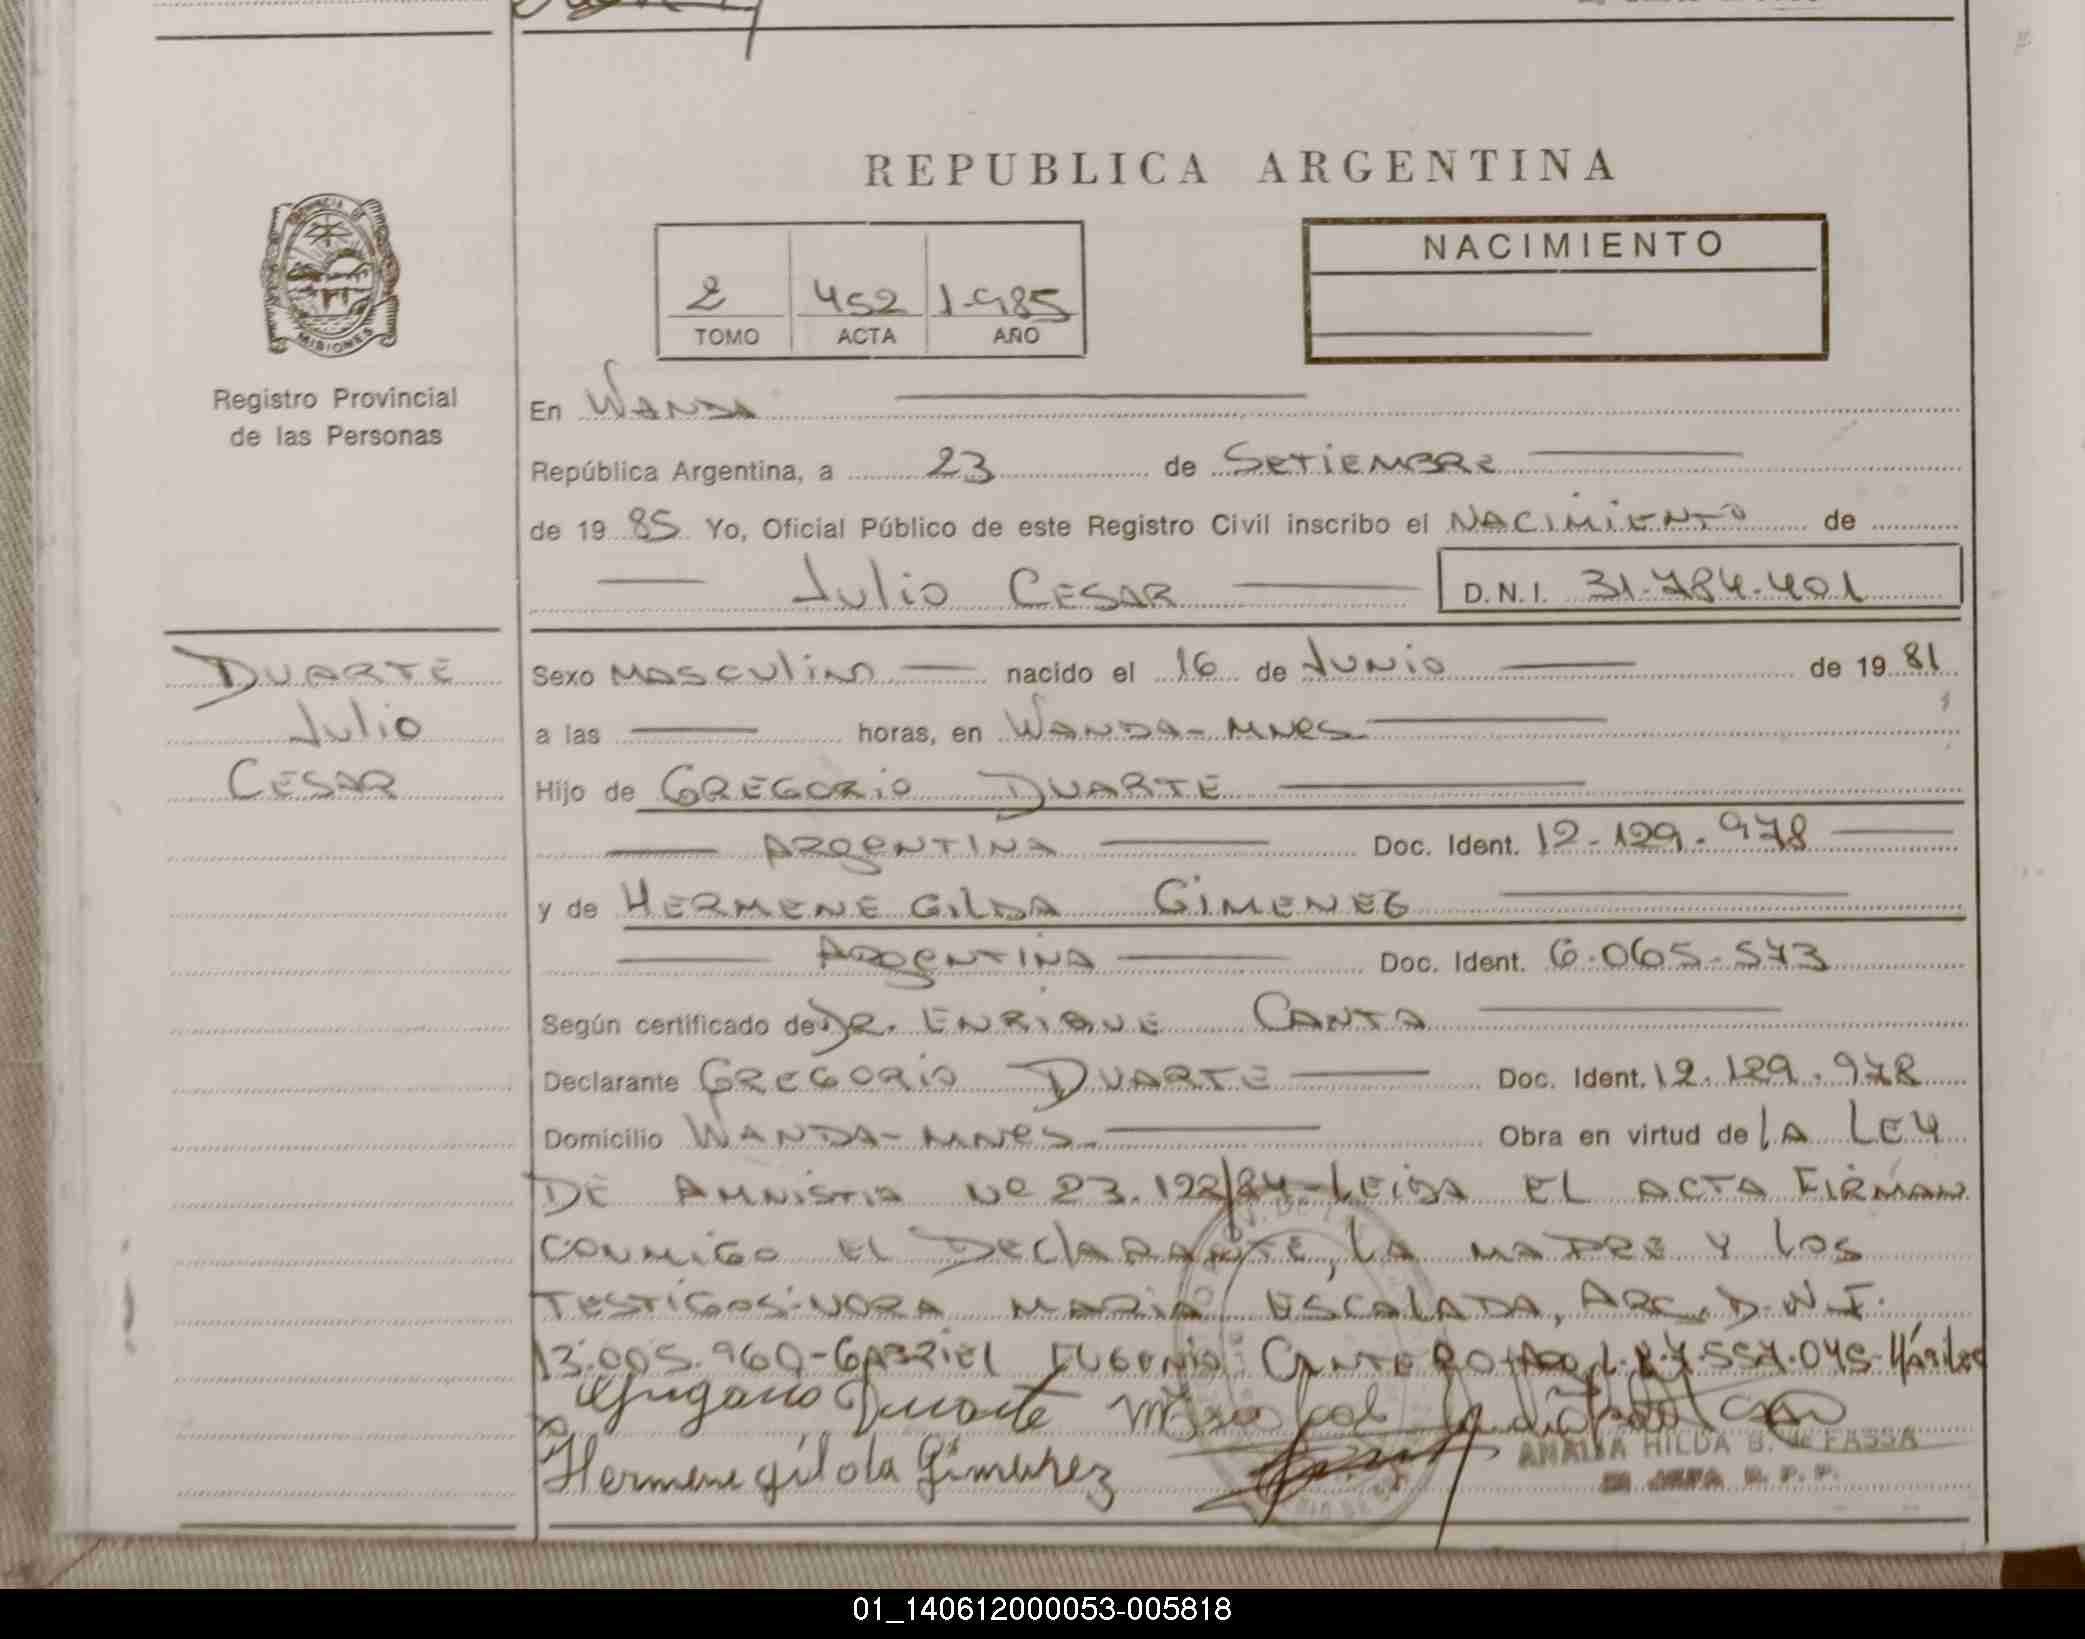 REPUBLICA ARGENTINA
PROVINCIA DE MISIONES
Registro Provincial
de las Personas
2 452 1.985
TOMO ACTA AÑO
NACIMIENTO
En WANDA
República Argentina, a 23 de SETIEMBRE
de 19 85 Yo, Oficial Público de este Registro Civil inscribo el NACIMIENTO de
JULIO CESAR D.N.I. 31.784.401
DUARTE
JULIO
CESAR
Sexo MASCULINO nacido el 16 de JUNIO de 19 81
a las horas, en WANDA-MNES
Hijo de GREGORIO DUARTE
ARGENTINA Doc. Ident. 12.129.978
y de HERMENEGILDA GIMENEZ
ARGENTINA Doc. Ident. 6.065.573
Según certificado de DR. ENRIQUE CANTA
Declarante GREGORIO DUARTE Doc. Ident. 12.129.978
Domicilio WANDA-MNES. Obra en virtud de LA LEY
DE AMNISTIA Nº 23.122/84-LEIDA EL ACTA FIRMAN
CONMIGO EL DECLARANTE, LA MADRE Y LOS
TESTIGOS: NORA MARIA ESCALADA, ARG. D.N.I.
13.005.960-GABRIEL EUGENIO CANTERO 7.557.045-
Duarte
Hermenegilda Gimenez
ANALIA HILDA B. de FASSA
JEFA R. P. P.
01_140612000053-005818